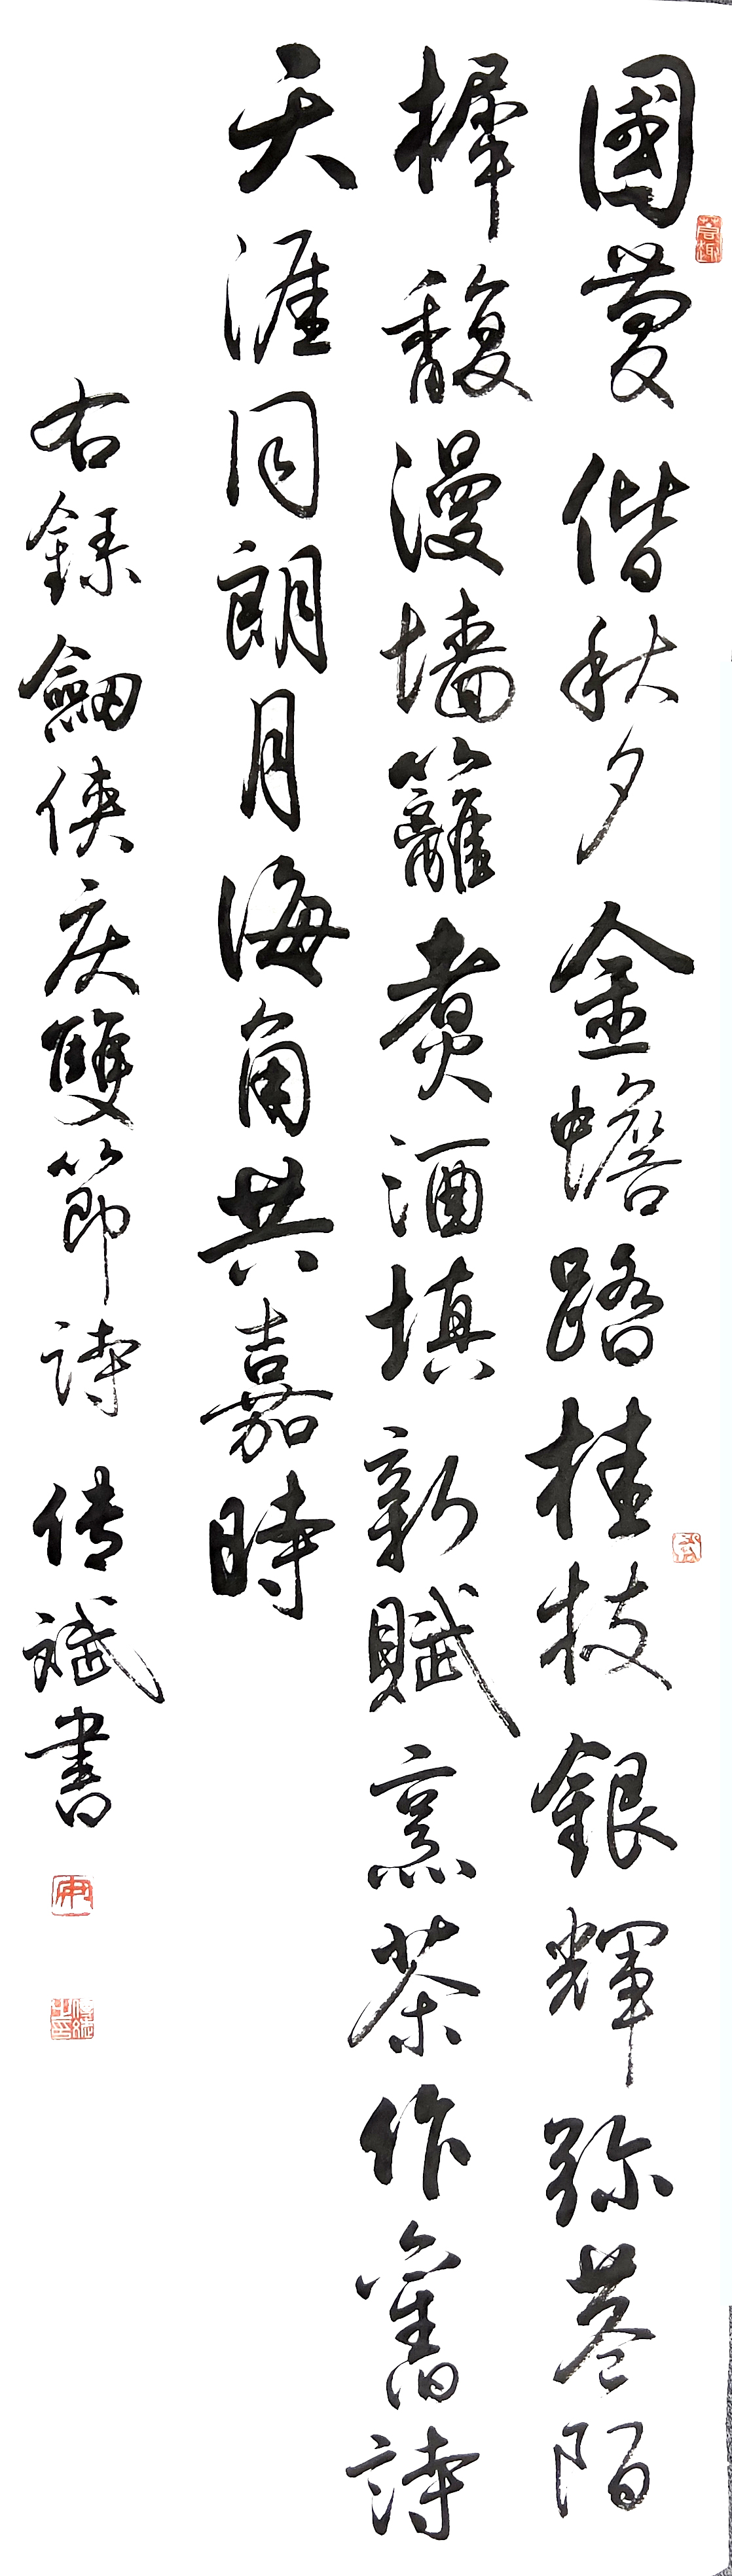 國慶偕秋夕金蟾踏桂枝銀輝弥巷陌
樨馥漫墙籬煮酒填新賦烹茶作舊詩
天涯同朗月海角共嘉時
右錄劒侠庆雙節詩 传斌書